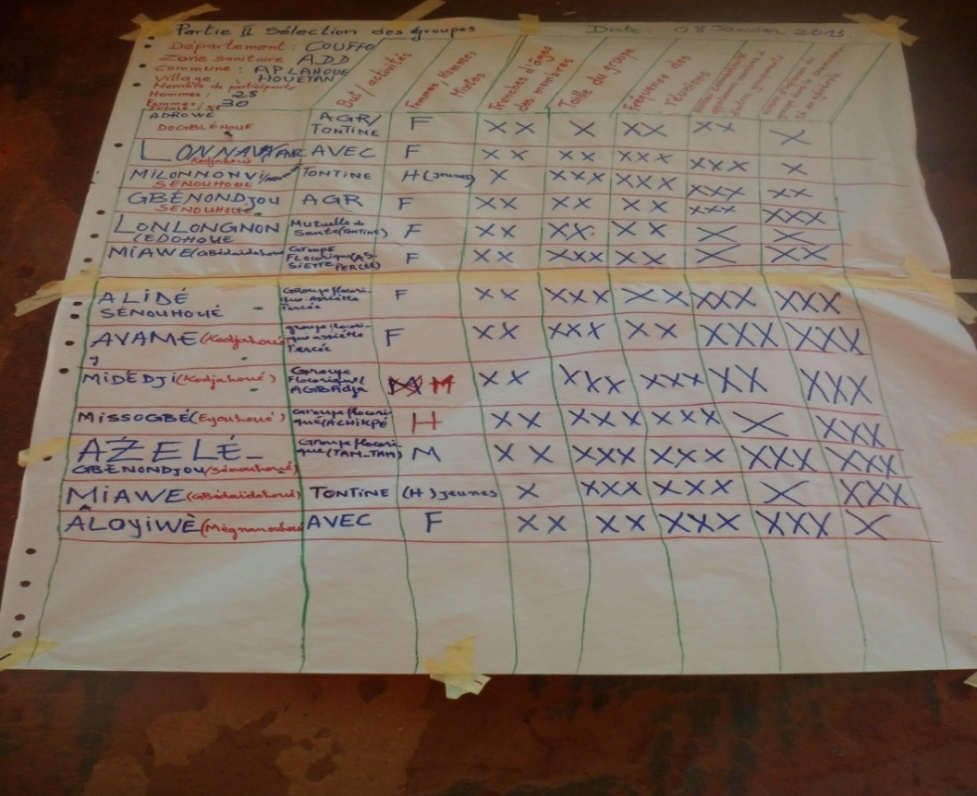 Partie II Sélection des groupes Date: 08 Janvier 2015
Département: COUFFO
Zone sanitaire ADD
Commune: APLAHOUE
Village HOUETAN
Nombre de participants
Hommes: 25
Femmes: 30
But / activités
Femmes / Hommes Mixtes
Tranches d'âges des membres
Taille du groupe
Fréquence des réunions
ADROWE DOGBLÉHOUE AGR/ TONTINE F XX X XX XX X
LONNAWA (Kodjahoué) AVEC F XX XX XXX XXX X
MILONNONVI SENOUHOUE TONTINE H (jeunes) X XXX XXX XXX XX
GBÉNONDJOU SENOUHOUE AGR F XX XX XX XXX XXX
LONLONGNON (EDOHOUE Mutuelle de Santé (TONTINE) F XX XX X X X
MIAWE (GBédaïdahoué Groupe Flocorique (AS- SIETTE PERCEE) F XX XXX XX X XX
ALIDÉ SÉNOUHOUÉ Groupe flocori- que assiette Percée F XX XXX XX XXX XXX
AYAME (Kodjahoué) groupe flocori- que assiette Percée F XX XXX XX XXX XXX
MIDÉDJI (Kodjahoué) Groupe Flocorique/ AGBAdja M XX XXX XXX XX XXX
MISSOGBÉ (Eyouhoué) Groupe flocori- que (ACHIKPÉ H XX XXX XXX X XXX
AZELÉ_ GBENONDJOU/Sénouhoué) Groupe flocori- que (TAM_TAM) M XX XXX XXX XXX XXX
MIAWE (GBédaïdahoué) TONTINE (H) jeunes X XXX XXX X XXX
ALOYIWÈ (Mègnanouhoué AVEC F XX XX XXX XXX X